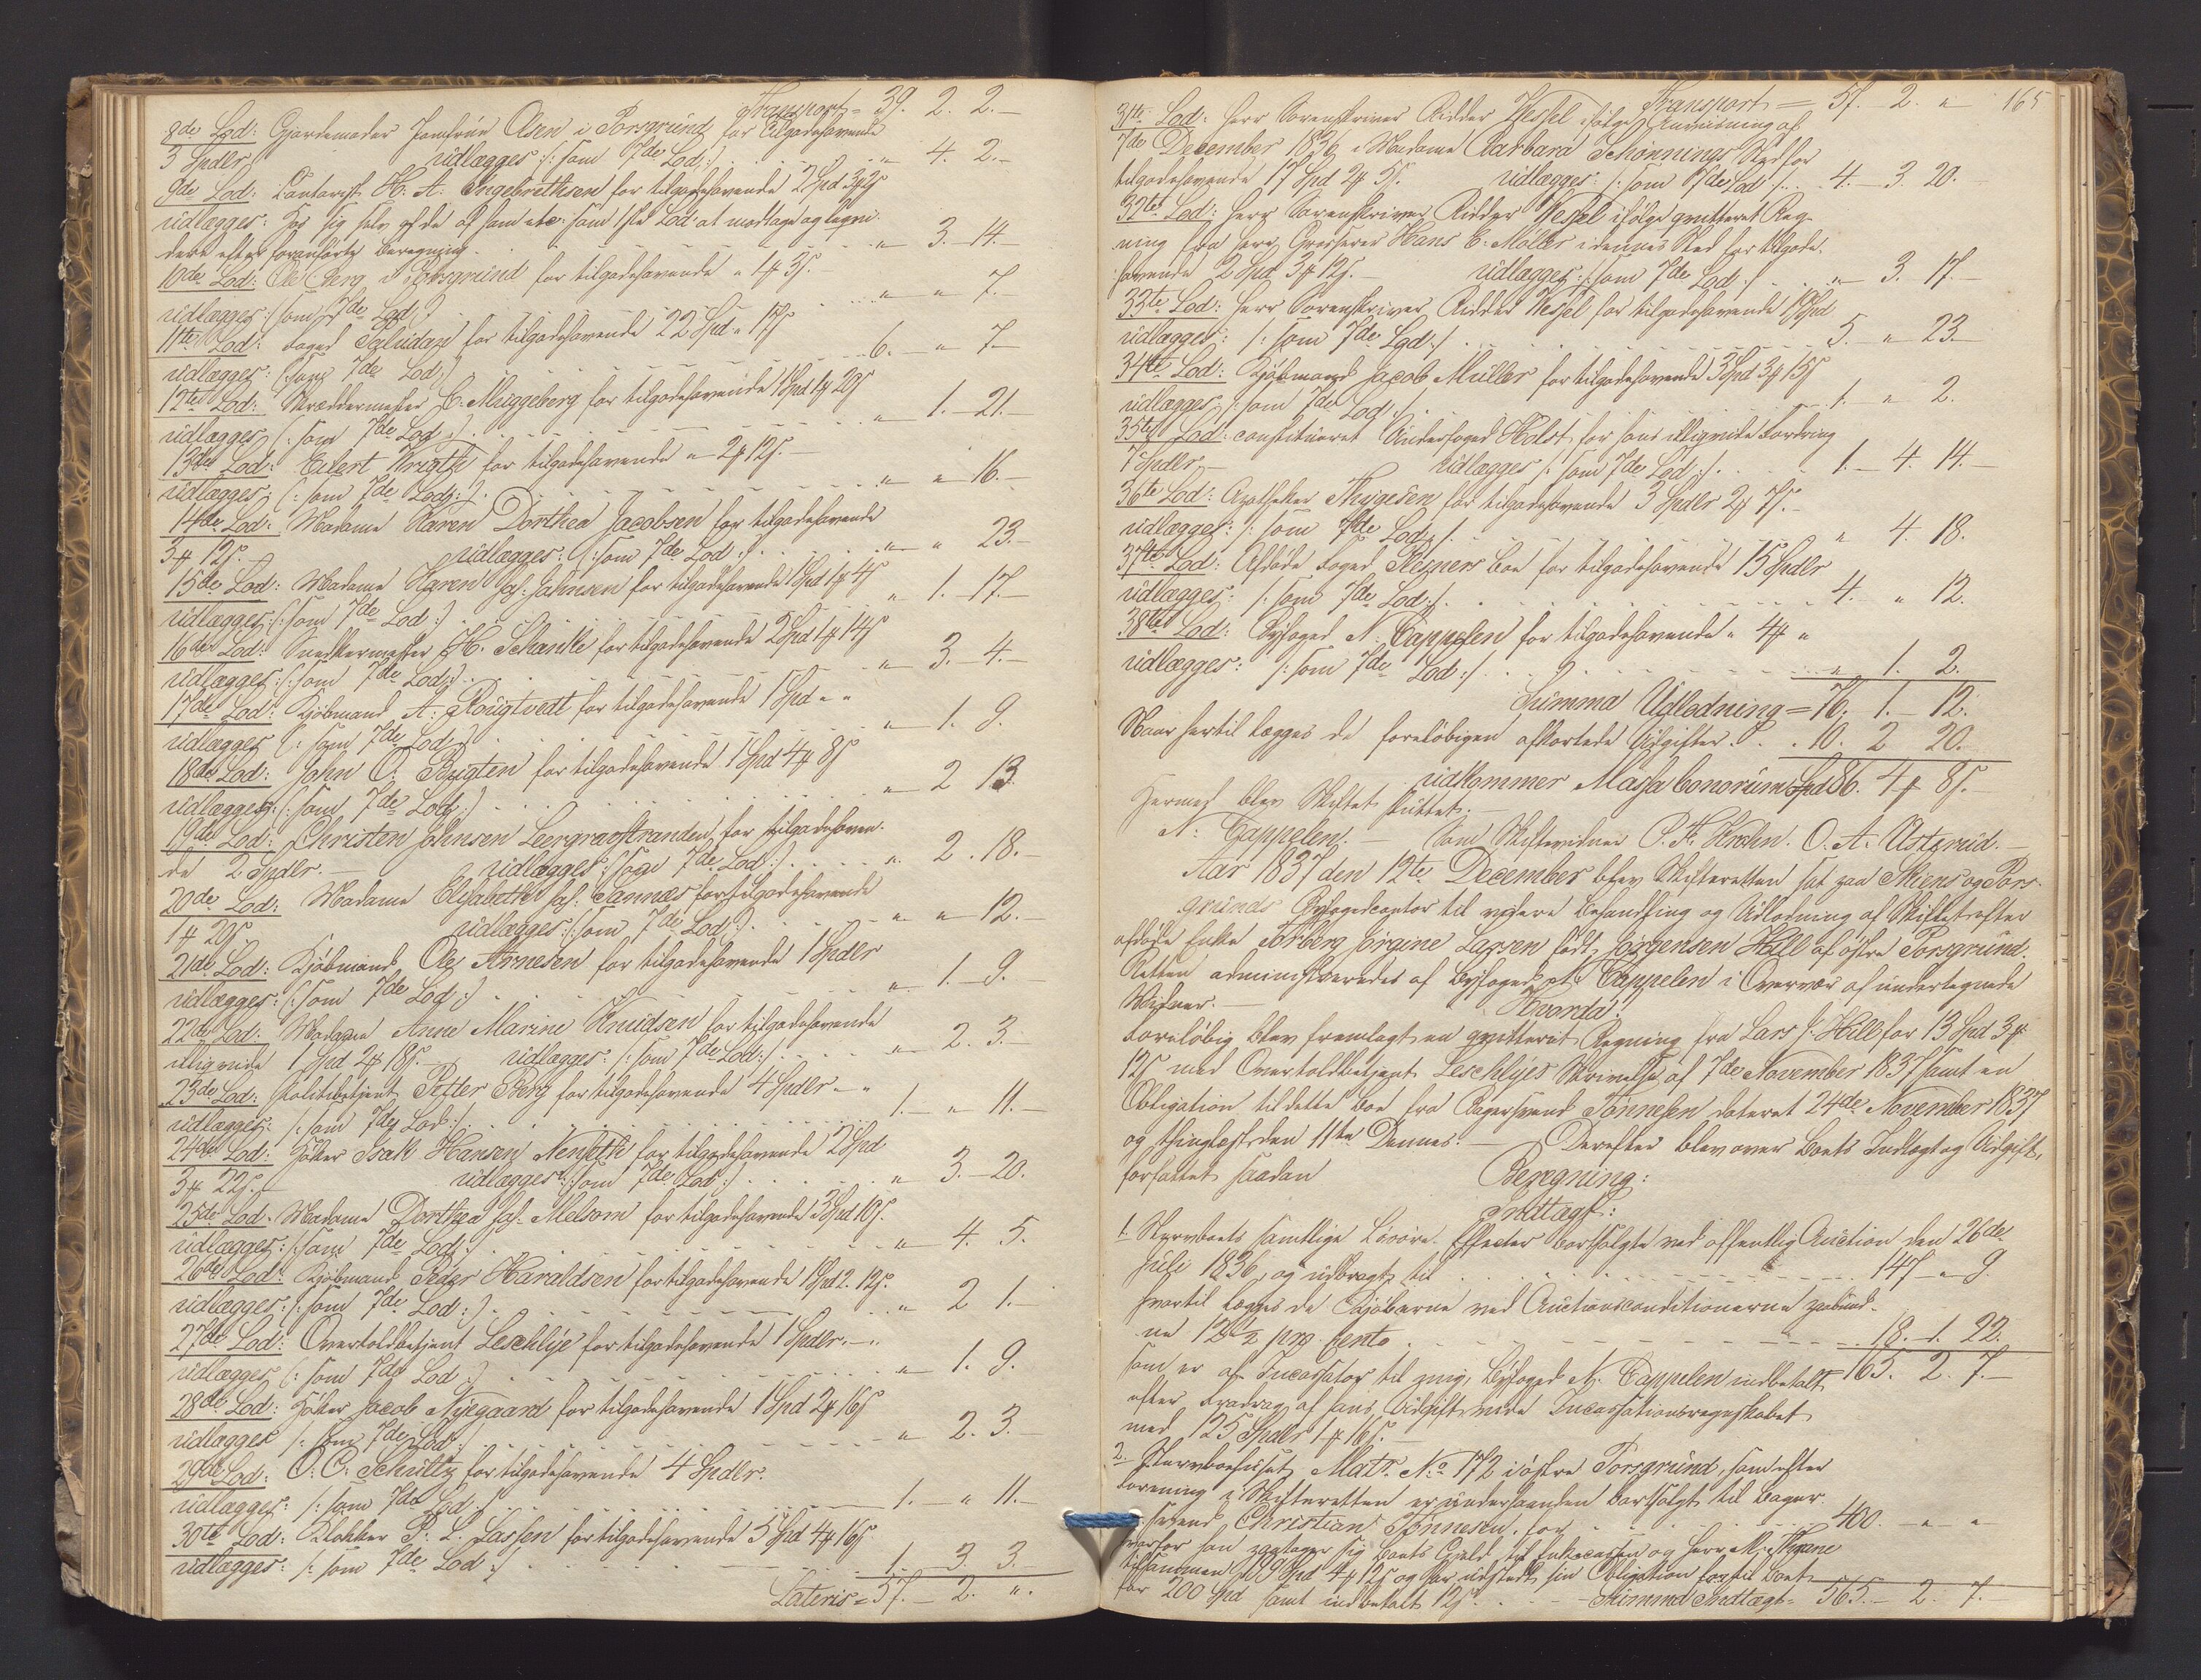 Transport = 39. 2. 2.-
8de Lod: Gjordemoder Jomfrue Olsen i Porsgrund for tilgodehavende
3 Spdlr udlægges /: som 7de Lod :/ . . . „ 4. 2.-
9de Lod: H. A. Ingebrethsen for tilgodehavende 2 Spd
udlægges: hos sig selv af de af ham etc: som 1ste Lod at modtage og
dere efter foranførte Beregning. . . . „ 3. 14.-
10de Lod: Ole Berg i Porsgrund for tilgodehavende „ 1 ß 3 s.
udlægges /: som 7de Lod :/ . . . „ „ 7.-
11te Lod: Foged Paludan for tilgodehavende 22 Spd „ 17 s
udlægges: /: som 7de Lod :/ . . . 6. „ 7-
12te Lod: Skræddermester C. Muggeberg for tilgodehavende 1 Spd 1 ß 20 s
udlægges /: som 7de Lod :/ . . . „ 1. 21.-
13de Lod: Eilert Wrigth for tilgodehavende „ 2 ß 12 s.
udlægges; /: som 7de Lod :/ . . . „ „ 16.-
14de Lod: Madame Karen Dorthea Jacobsen for tilgodehavende
3 ß 12 s. udlægges: /: som 7de Lod :/ . . . „ „ 23.-
15de Lod: Madame Karen Jahnsen for tilgodehavende 1 Spd 1 ß 4 s
udlægges: /: som 7de Lod :/ . . . „ 1. 17.-
16de Lod: Snedkermester H. Schanke for tilgodehavende 2 Spd 1 ß 14 s
udlægges: /: som 7de Lod :/ . . . „ 3. 4.-
17de Lod: Kjøbmand A. Rougtvedt for tilgodehavende 1 Spd „ „
udlægges /: som 7de Lod :/ . . . „ 1. 9.
18de Lod: John O. Bugten for tilgodehavende 1 Spd 4 ß 8 s
udlægges: /: som 7de Lod :/ . . . „ 2 13.
19de Lod: Christen Johnsen Leergravstranden for tilgodehaven-
de 2 Spdlr. udlægges: /: som 7de Lod :/ . . . „ 2. 18.-
20de Lod: Madame Elisabeth Sannæs for tilgodehavende
1 ß 20 s. udlægges: /: som 7de Lod :/ . . . „ „ 12.-
21de Lod: Kjøbmand Ole Arnesen for tilgodehavende 1 Spdlr
udlægges: /: som 7de Lod :/ . . . „ 1. 9.-
22de Lod: Madame Anne Marine Knudsen for tilgodehavende
illiqvide 1 Spd 2 ß 18 s. udlægges: /: som 7de Lod :/ . . . „ 2. 3.-
23de Lod: Politibetjent Petter Berg for tilgodehavende 4 Spdlr „ „
udlægges: /: som 7de Lod :/ . . . 1. „ 11.-
24de Lod: Høker Isak Hansen Nenseth for tilgodehavende 2 Spd
3 ß 22 s. udlægges: /: som 7de Lod :/ . . . „ 3. 20.
25de Lod: Madame Dorthea Melsom for tilgodehavende 3 Spd 10 s.
udlægges: /: som 7de Lod :/ . . . „ 4. 5.
26de Lod: Kjøbmand Peder Haraldsen for tilgodehavende 1 Spd 2. 12 s.
udlægges: /: som 7de Lod :/ . . . „ 2 1.-
27de Lod: Overtoldbetjent Leschlÿe for tilgodehavende 1 Spdlr. „
udlægges /: som 7de Lod :/ . . . „ 1. 9.
28de Lod: Høker Jacob Nyegaard for tilgodehavende 1 Spd 2 ß 16 s
udlægges /: som 7de Lod :/ . . . „ 2. 3.-
29de Lod: O. C. Schultz for tilgodehavende 4 Spdlr.
udlægges: /: som 7de Lod :/ . . . 1. „ 11.-
30te Lod: Klokker P. L. Lassen for tilgodehavende 5 Spd 4 ß 16 s
udlægges: /: som 7de Lod :/ . . . 1. 3 3.
Lateris = 57. 2. „.
Transport = 57. 2. „ 165
31te Lod: Herr Sorenskriver Ridder Wessel ifølge Anviisning af
7de December 1836 i Madame Barbara Schønnings Sted for
tilgodehavende 17 Spd 2 ß 5 s. udlægges: /: som 7de Lod :/ . . . 4. 3. 20.
32te Lod: Herr Sorenskriver Ridder Wessel ifølge qvitteret Reg-
ning fra Herr Grosserer Hans E. Møller i dennes Sted for tilgode-
havende 2 Spd 3 ß 12 s. udlægges: /: som 7de Lod :/ . . . „ 3. 17.
33te Lod: Herr Sorenskriver Ridder Wessel for tilgodehavende 19 Spd
udlægges: /: som 7de Lod :/ . . . 5. „ 23.
34te Lod: Kjøbmand Jacob Müller for tilgodehavende 3 Spd 3 ß 15 s
udlægges: /: som 7de Lod :/ . . . 1. „ 2.
35te Lod: constitueret Underfoged Holst for hans illiqvide Fordring
7 Spdlr. udlægges /: som 7de Lod :/ . . . 1. 4. 14.
36te Lod: Apotheker Thygesen for tilgodehavende 3 Spdlr 2 ß 7 s.
udlægges: /: som 7de Lod :/ . . . „ 4. 18.
37te Lod: Afdøde Foged Resners Boe for tilgodehavende 15 Spdlr
udlægges: /: som 7de Lod :/ . . . 4. „ 12.
38te Lod: Byfoged N. Cappelen for tilgodehavende „ 4 ß „
udlægges: /: som 7de Lod :/ . . . „ 1. 2.
Summa Udlodning = 76. 1. 12.
Naar hertil lægges de foreløbigen afkortede Udgifter . . . 10. 2 20.
udkommer Massa bonorum Spd 86. 4 ß 8 s.
Hermed blev Skiftet sluttet.
N. Cappelen. Som Skiftevidner P. F. Krohn. O. A. Ustgrud.
Aar 1837 den 12te December blev Skifteretten sat paa Skiens og Pors-
grunds Byfogedcontor til videre Behandling og Udlodning af Skiftet efter
afdøde Enke Torberg Jørgine Larsen født Jørgensen Hall af østre Porsgrund.
Retten administreredes af Byfoged N. Cappelen i Overvær af undertegnede
Vidner. Hvorda:
Foreløbig blev fremlagt en qvitterit Regning fra Lars J. Hall for 13 Spd 3 ß
12 s med Overtoldbetjent Leschlÿes Skrivelse af 7de November 1837 samt en
Obligation til dette Boe fra Bagersvend Tønnesen dateret 24de November 1837
og thinglæst den 11te Dennes. Derefter blev over Boets Indtægt og Udgift,
forfattet saadan Beregning:
Indtægt:
1. Stervboets samtlige Løsøre-Effecter bortsolgte ved offentlig Auction den 26de
Juli 1836, og udbragt til . . . 147 „ 9.
hvortil lægges de Kjøberne ved Auctionsconditionerne paabud-
ne 12½ pro Cento . . . 18. 1. 22.
som er af Incassator til mig, Byfoged N. Cappelen indbetalt = 165. 2. 7.-
efter Fradrag af hans Udgift vide Incassationsregnskabet
med 125 Spdlr 1 ß 16 s.
2. Stervboehuset Matr. No 172 i østre Porsgrund, som efter
Forening i Skifteretten er underhaanden bortsolgt til Bager-
svend Christian Tønnesen, for . . . 400. „ „
hvorfor han paatager sig Boets Gjæld til Enkecassen og Herr
tilsammen 199 Spd 4 ß 12 s og har udstedt sin Obligation til Boet
for 200 Spd samt indbetalt 12 s. . . . Summa Indtægt = 565. 2. 7.-